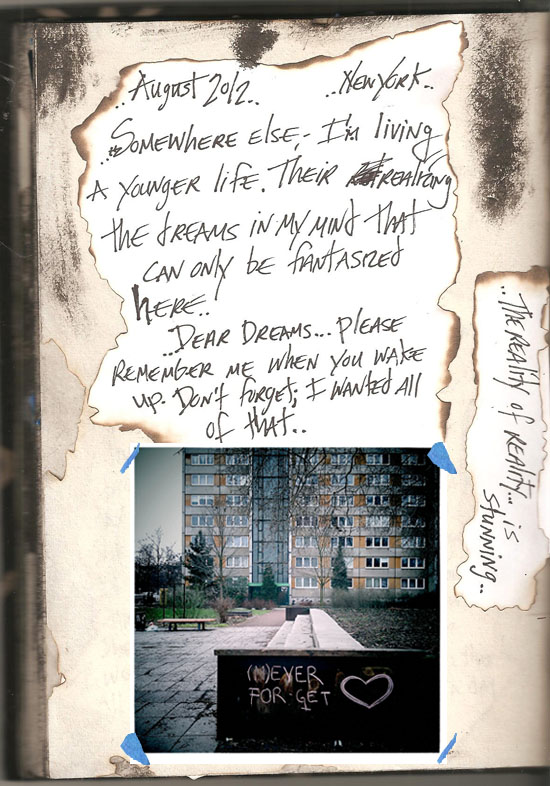 ..August 2012..
..New York..
..Somewhere else,- I'm living
A younger life. Their realizing
the dreams in my mind that
can only be fantasized
here..
..Dear Dreams... please
remember me when you wake
up. Don't forget; I wanted all
of that..
..The reality of reality... is
stunning..
(N)EVER
FOR·GET